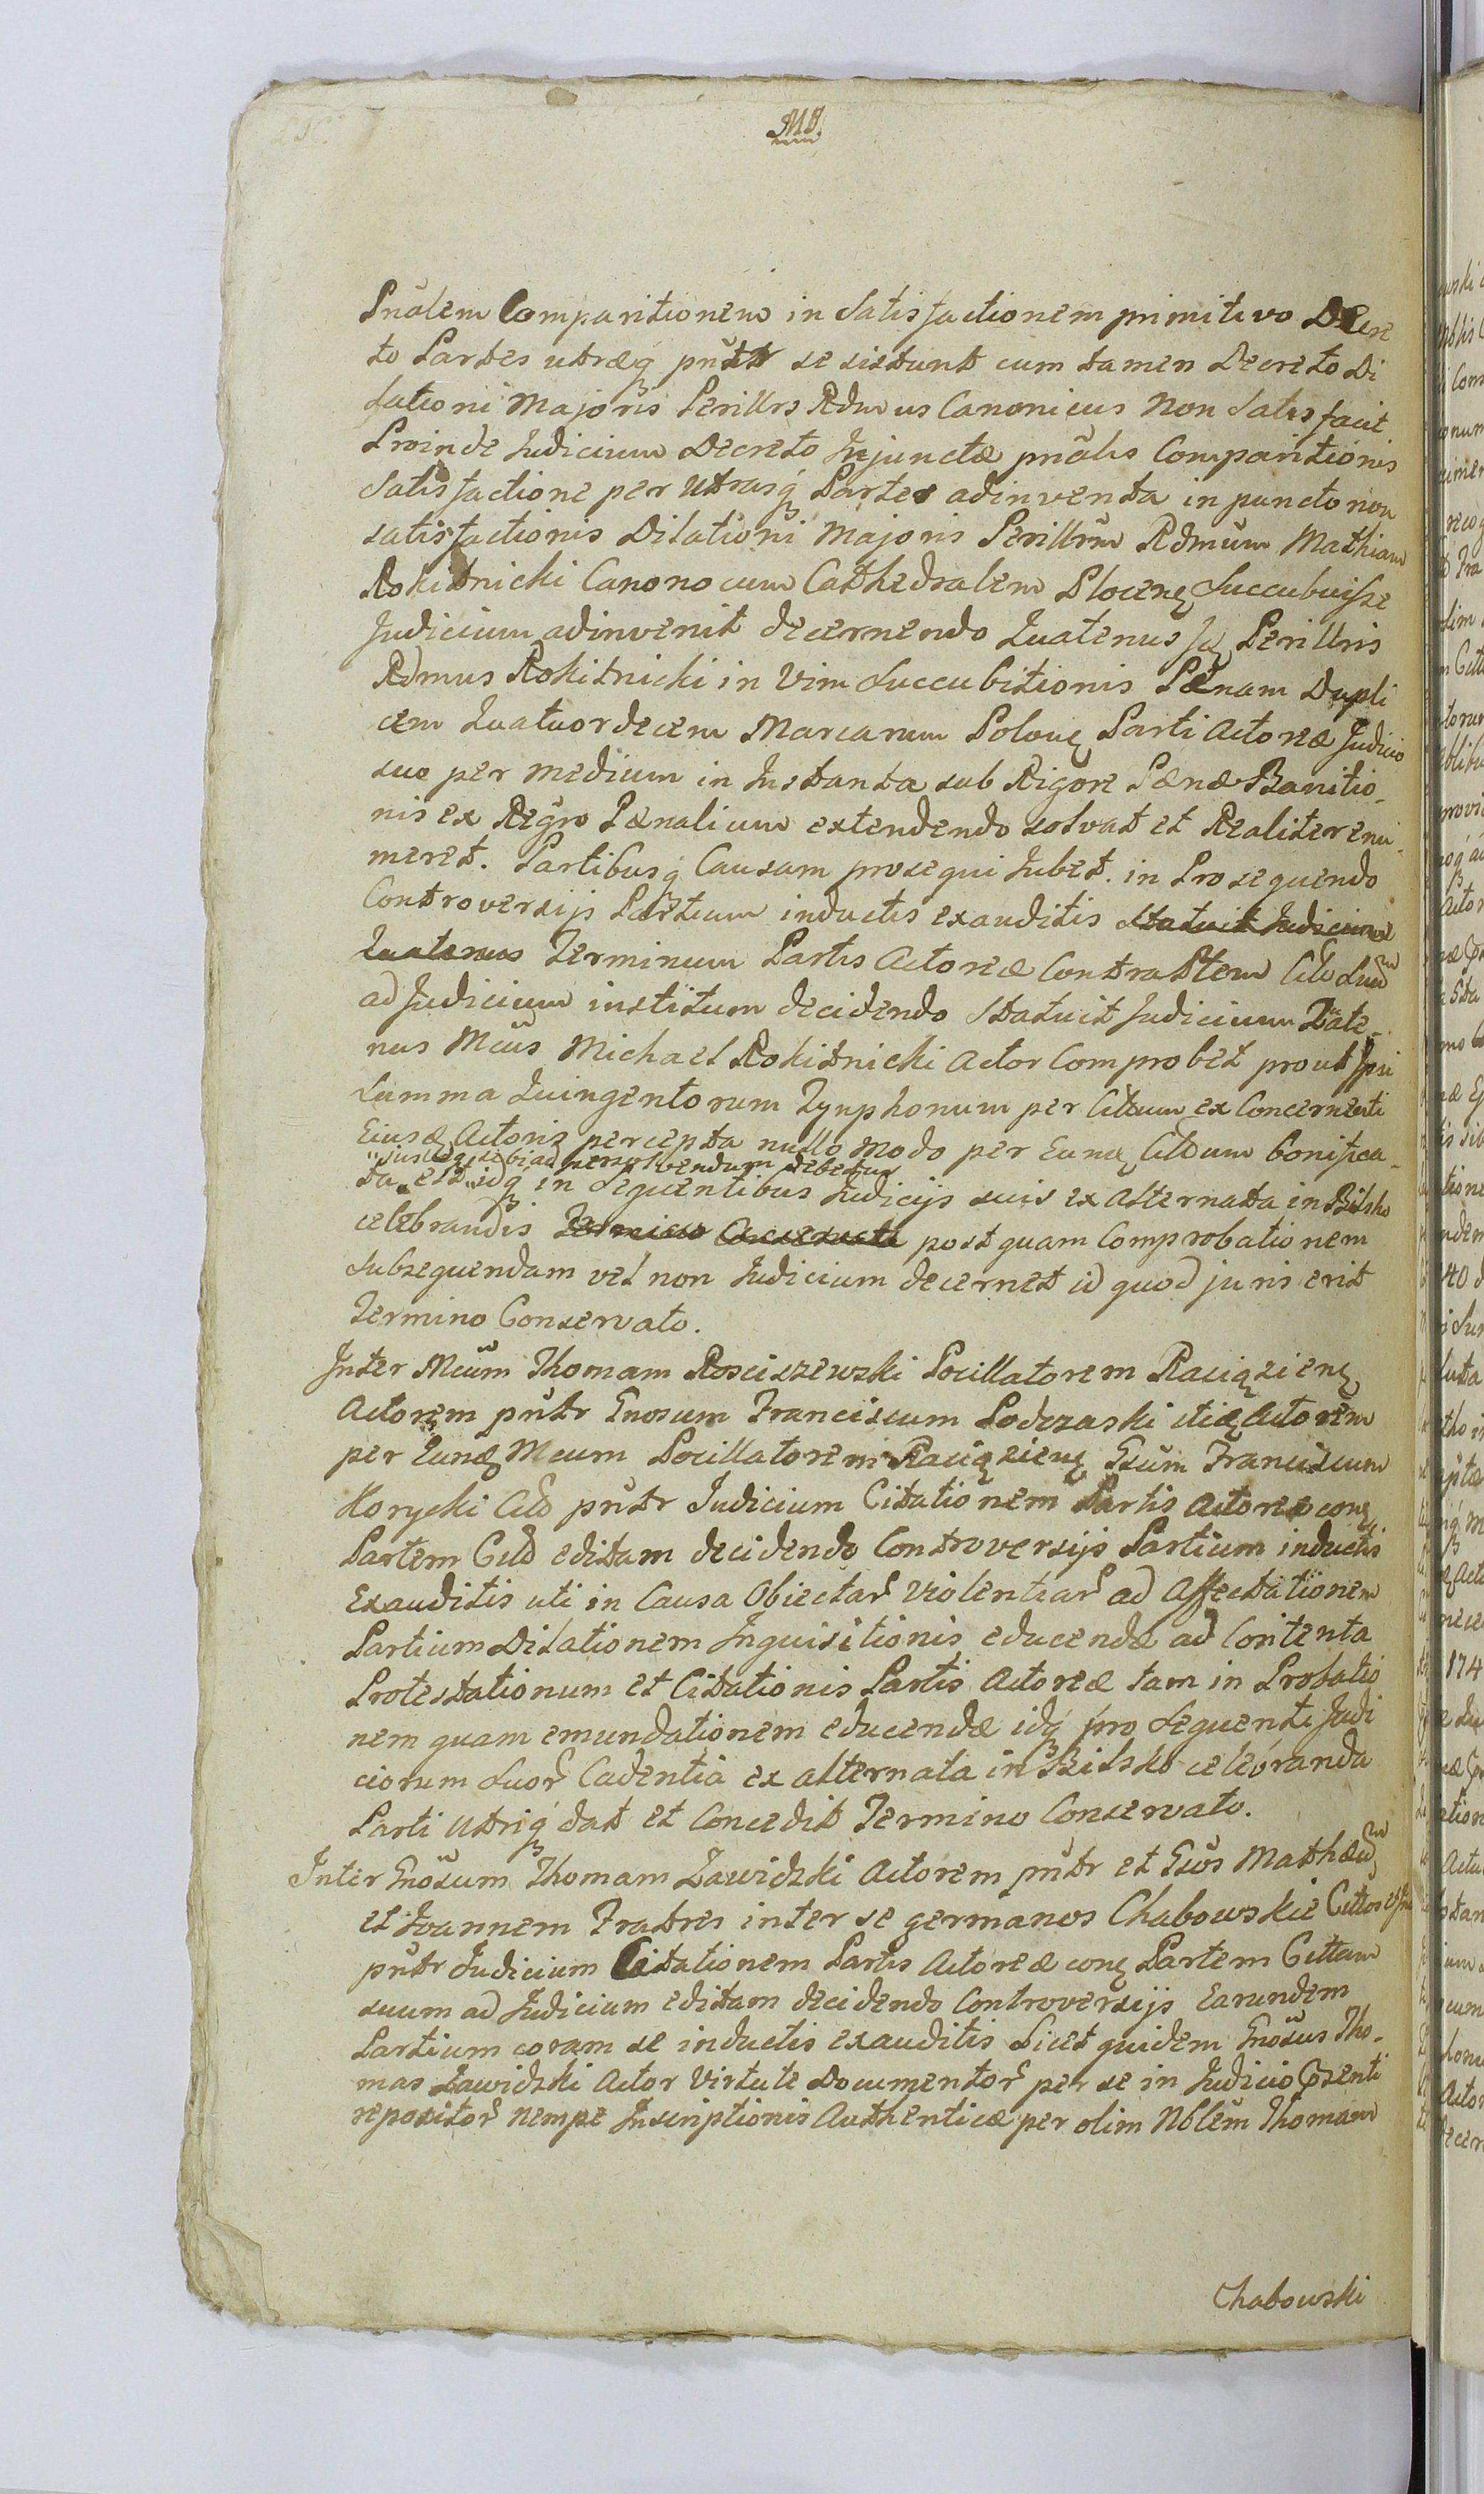 Pnalem Comparitionem in Satisfactionem primitivo Decre
to Partes utræq pnttr se sistunt cum tamen Decreto Di
lationi Majoris Perillrs Rdmus Canonicus Non Satis facit
Proinde Judicium Decreto Injunctæ pnalis Comparitionis
Satisfactione per Utrasq Partes adinventa in puncto non
satisfactionis Dilationi Majoris Perillrm Rdmum Mathiam
Rokitnicki Canonocum Cathedralem Plocenę Succubuisse
Judicium adinvenit decernendo Quatenus Perillris
Rdmus Rokitnicki in Vim Succubitionis Pænam Dupli
cem Quatuordecem Marcarum Polonę Parti Actoreæ Judicio
suo per medium in Instanta sub Rigore Pænæ Banitio-
nis ex Regro Pænalium extendendo solvat et Realiter enu-
meret. Partibusq Causam prosequi Jubet. in Prosequendo
Controversijs Partium inductis exauditis Statuit Judicium
Quatenus Terminum Partis Actoreæ Contra Ptem Citd
ad Judicium institum decidendo Statuit Judicium Qate-
nus Mcus Michael Rokitnicki Actor Comprobet prout Ipsi
Summa Quingentorum Tynphonum per Cittum ex Concernenti
Ejusdę Actoris percepta nullo modo per Eunę Cittum bonifica-
jusq sibi ad persolvendum debetur
ta est idq in Sequentibus Judicijs suis ex alternata in Bilsko
celebrandis Termino Conservato post quam Comprobationem
Subsequendam vel non Judicium decernet id quod juris erit
Termino Conservato.
Inter Mcum Thomam Rosciszewski Pocillatorem Raciązienę
Actorem pnttr Gnosum Franciscum Podczaski itię Actorem
per Eunę Mcum Pocillatorem Raciązienę Gsum Franciscum
Korycki Citd pnttr Judicium Citationem Partis Actoreæ conę
Partem Cittd editam decidendo Controversijs Partium inductis
Exauditis uti in Causa Obiectar Violentiar ad Affectationem
Partium Dilationem Inquisitionis educendæ ad Contenta
Protestationum et Citationis Partis Actoreæ tam in Probatio
nem quam emundationem educendæ idq pro Sequenti Judi
ciorum Suor Cadentia ex alternata in Bilsko celebranda
Parti Utriq dat et Concedit Termino Conservato.
Inter Gnosum Thomam Zawidzki Actorem pnttr et Gsos Mathæum
et Joannem Fratres inter se germanos Chabowskie Cittos
pnttr Judicium Citationem Partis Actoreæ conę Partem Cittam
suum ad Judicium editam decidendo Controversijs Earundem
Partium coram se inductis exauditis Licet quidem Gnosus Tho-
mas Zawidzki Actor Virtute Documentor per se in Judicio Prsenti
repositor nempe Inscriptionis Authenticæ per olim Nblem Thomam
Chabowski